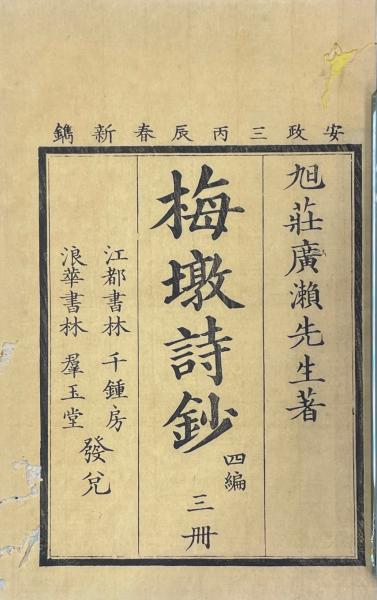 安政三丙辰春新鐫
旭莊廣瀨先生著
梅墩詩鈔 四編 三冊
江都書林 千鍾房
浪華書林 羣玉堂
發兌